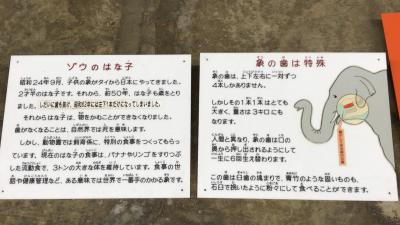 ゾウのはな子
昭和24年9月、子供の象がタイから日本にやってきました。
2才半のはな子です。それから、約50年、はな子も歳をとり
ました。しだいに歯も抜け、昭和62年には左下1本だけになってしまいました。
それからはな子は、物をかむことができなくなりました。
歯がなくなることは、自然界では死を意味します。
しかし、動物園では飼育係に、特別の食事をつくってもらっ
ています。現在のはな子の食事は、バナナやリンゴをすりつぶ
した流動食で、3トンの大きな体を維持しています。食事の世
話や健康管理など、ある意味では世界で一番手のかかる象です。
象の歯は特殊
象の歯は、上下左右に一対ずつ
4本しかありません。
しかしその1本1本はとても
大きく、重さは3キロにも
なります。
人間と異なり、象の歯は口の
奥から押し出されるようにして
一生に6回生え替わります。
この歯は臼歯の塊まりで、青竹のような固いものも、
石臼で挽いたように粉々にして食べることができます。